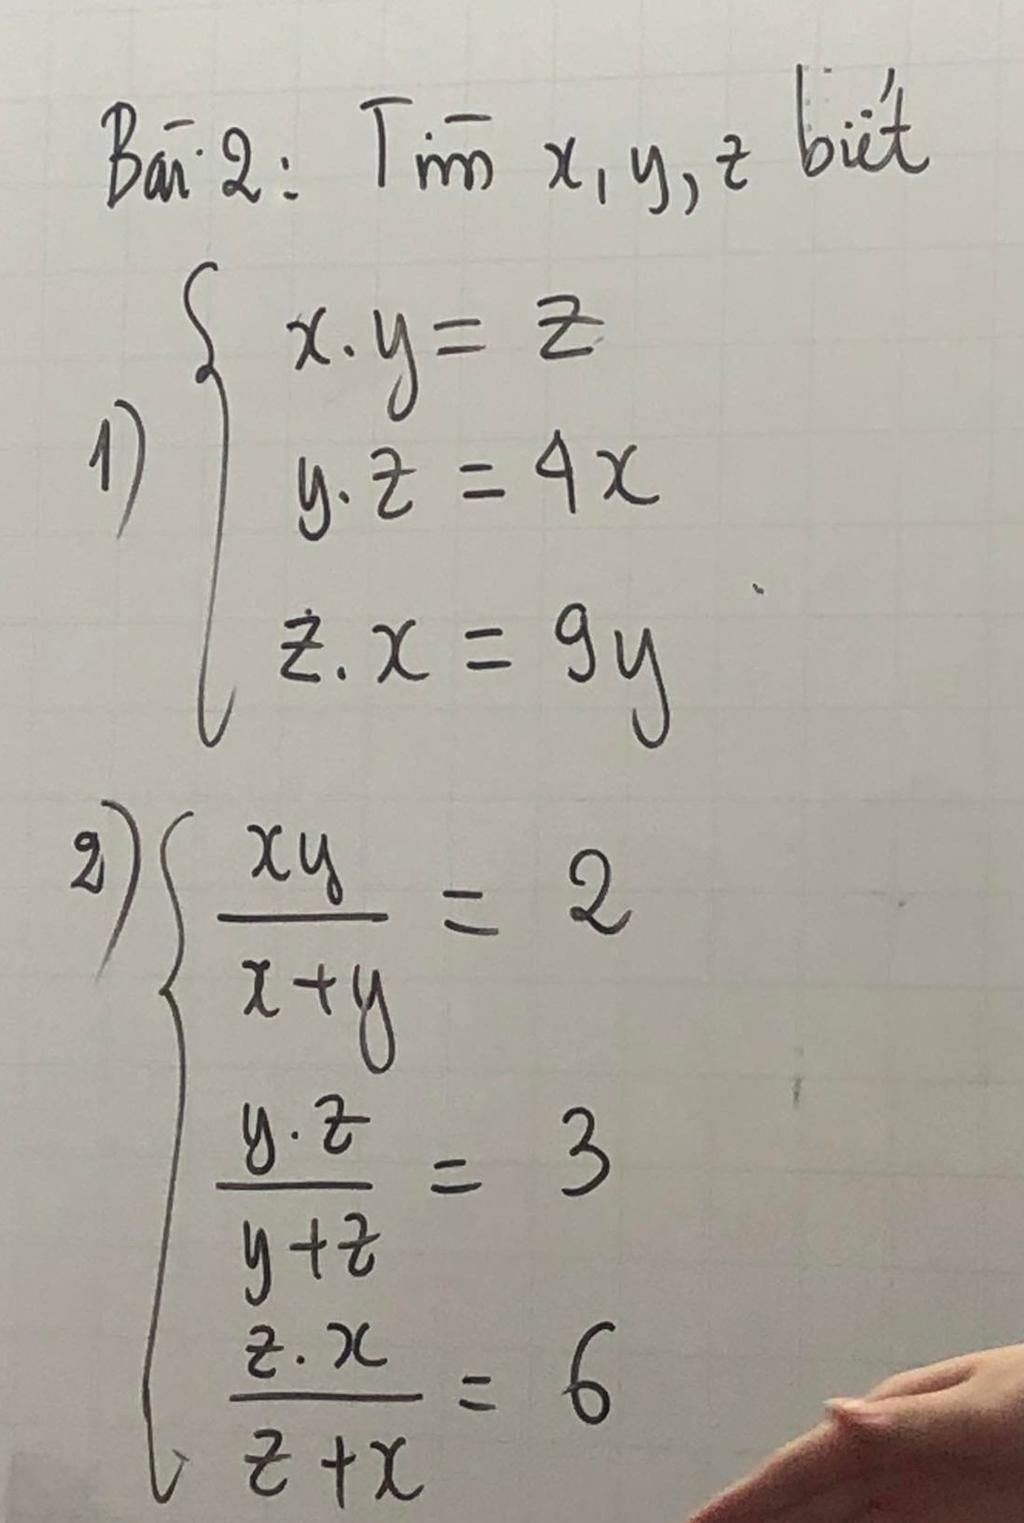 Bài 2: Tìm x, y, z biết
1)
x.y = z
y.z = 4x
z.x = 9y
2)
xy
x+y
= 2
y.z
y+z
= 3
z.x
z+x
= 6